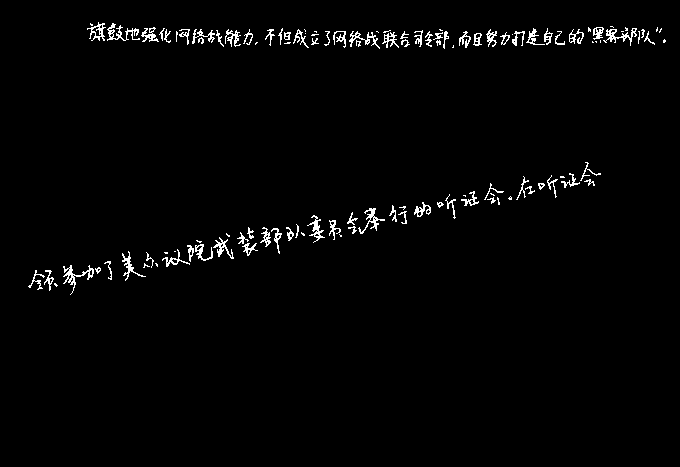 旗鼓地强化网络战能力,不但成立了网络战联合司令部,而且努力打造自己的“黑客部队”。
领参加了美众议院武装部队委员会举行的听证会。在听证会